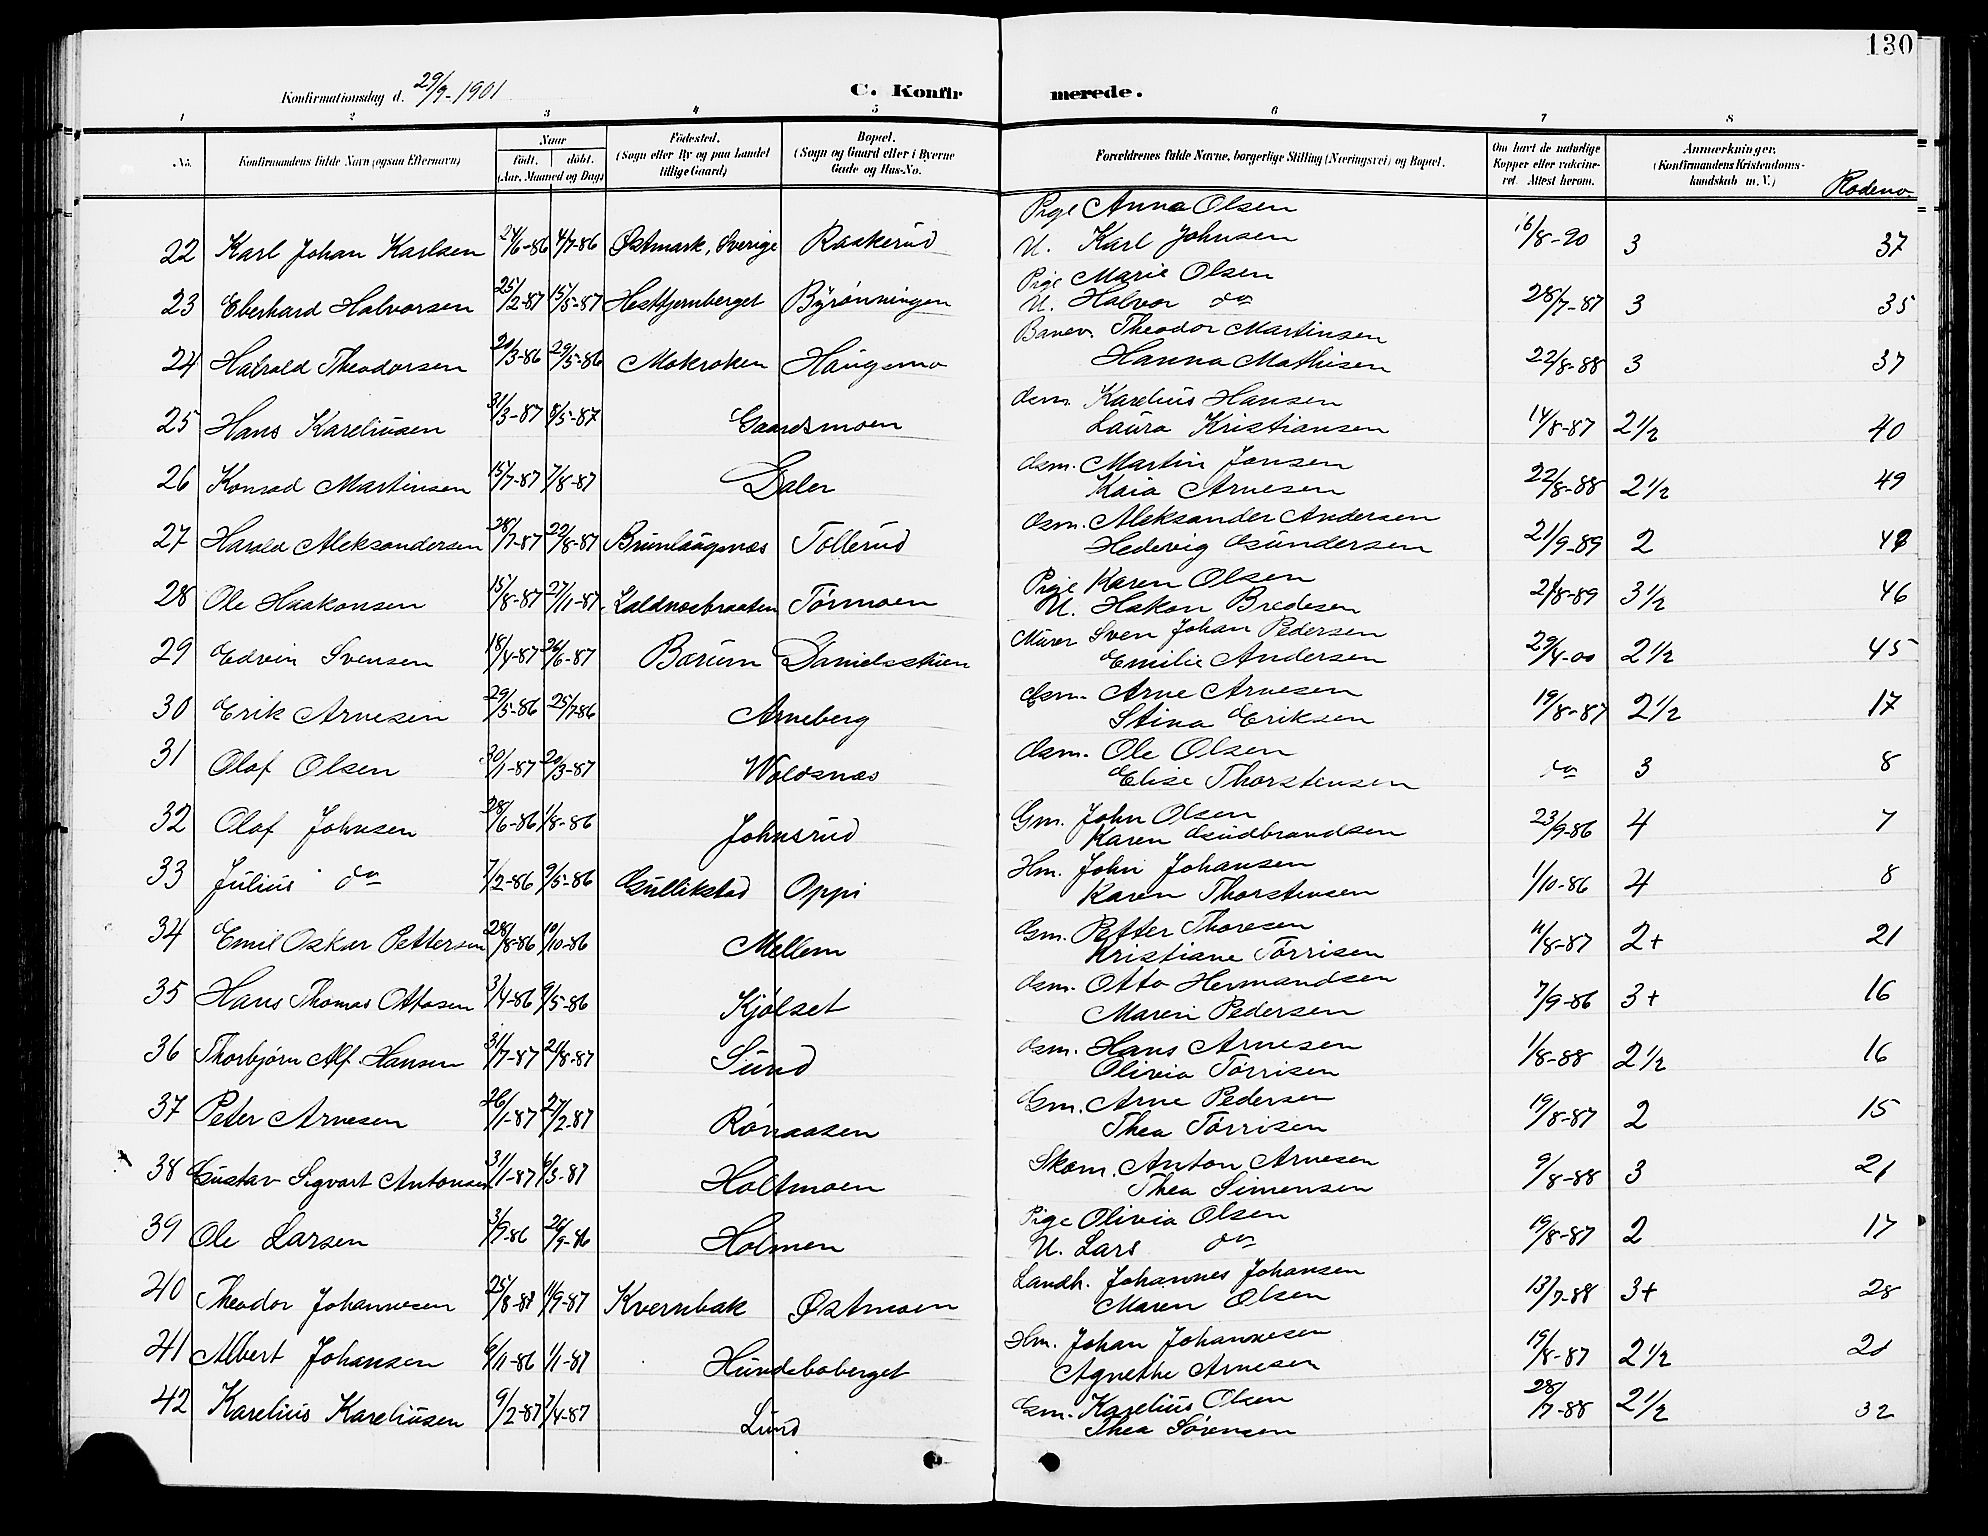 130
Konfirmationsdag d. 29/9-1901
C. Konfirmerede.
1 2 3 4 5 6 7 8
No. Konfirmandens fulde Navn (ogsaa Efternavn) Naar født. døbt. (Aar, Maaned og Dag) Fødested. (Sogn eller By og paa Landet tillige Gaard) Bopæl. (Sogn og Gaard eller i Byerne Gade og Hus-No. Forældrenes fulde Navne, borgerlige Stilling (Næringsvei) og Bopæl. Om havt de naturlige Kopper eller vakcineret. Attest herom. Anmærkninger. (Konfirmandens Kristendomskundskab m. V.) Rodeno.
Pige Anna Olsen
22 Karl Johan Karlsen 24/6-86 4/7-86 Østmark, Sverige Raskerud U. Karl Johnsen 16/8-90 3 37
Pige Marie Olsen
23 Eberhard Halvorsen 25/2-87 15/5-87 Hestkjernberget Byrønningen U. Halvor do 28/7-87 3 35
Banev. Theodor Martinsen
24 Halvald Theodorsen 20/3-86 29/5-86 Mokroken Haugsmo Hanna Mathisen 22/8-88 3 37
Gsm. Karelius Hansen
25 Hans Kareliusen 31/3-87 8/5-87 Gaardsmoen Laura Kristiansen 14/8-87 2 1/2 40
Gsm. Martin Jonsen
26 Konrad Martinsen 15/7-87 7/8-87 Daler Kaia Arnesen 22/8-88 2 1/2 49
Gsm. Aleksander Andersen
27 Harald Aleksandersen 28/7-87 22/8-87 Brunlaugsnæs Tollerud Hedevig Gundersen 21/9-89 2
Pige Karen Olsen
28 Ole Haakonsen 15/8-87 27/11-87 Kaldnæsbraaten Tørmoen U. Hakon Bredesen 21/8-89 3 1/2 46
Murer Sven Johan Pedersen
29 Edvin Svensen 18/4-87 26/6-87 Bærum Danielsstuen Emilie Andersen 29/4-00 2 1/2 45
Gsm. Arne Arnesen
30 Erik Arnesen 29/5-86 25/7-86 Arneberg Stina Eriksen 19/8-87 2 1/2 17
Gsm. Ole Olsen
31 Olaf Olsen 30/1-87 20/3-87 Woldsnæs Elise Thorstensen do 3 8
Gm. John Olsen
32 Olaf Johnsen 28/6-86 1/8-86 Johnsrud Karen Gudbrandsen 23/9-86 4 7
Hm. John Johansen
33 Julius do 7/2-86 9/5-86 Gullikstad Oppi Karen Thorstensen 1/10-86 4 8
Gm. Petter Thoresen
34 Emil Oskar Pettersen 28/8-86 10/10-86 Mellem Kristiane Torrisen 11/8-87 2+ 21
Gsm. Otto Hermandsen
35 Hans Thomas Ottosen 3/4-86 9/5-86 Kjølset Maren Pedersen 7/9-86 3+ 16
Gsm. Hans Arnesen
36 Thorbjørn Alf. Hansen 31/7-87 21/8-87 Sund Olivia Torrisen 1/8-88 2 1/2 16
Gm. Arne Pedersen
37 Peter Arnesen 26/1-87 27/2-87 Rønaasen Thea Torrisen 19/8-87 2 15
Skom. Anton Arnesen
38 Gustav Sigvart Antonsen 31/1-87 6/3-87 Holtmoen Thea Simensen 9/8-88 3 21
Pige Olivia Olsen
39 Ole Larsen 3/9-86 26/9-86 Holmen U. Lars do 19/8-87 2 17
Landh. Johannes Johansen
40 Theodor Johannesen 25/8-87 11/9-87 Kvernbak Østmoen Maren Olsen 13/7-88 3+ 28
Hm. Johan Johannesen
41 Albert Johansen 6/11-86 1/1-87 Hundeboberget Agnethe Arnesen 19/8-87 2 1/2
Gm. Karelius Olsen
42 Karelius Kareliusen 9/2-87 7/4-87 Lund Thea Sørensen 28/7-88 2 1/2 32